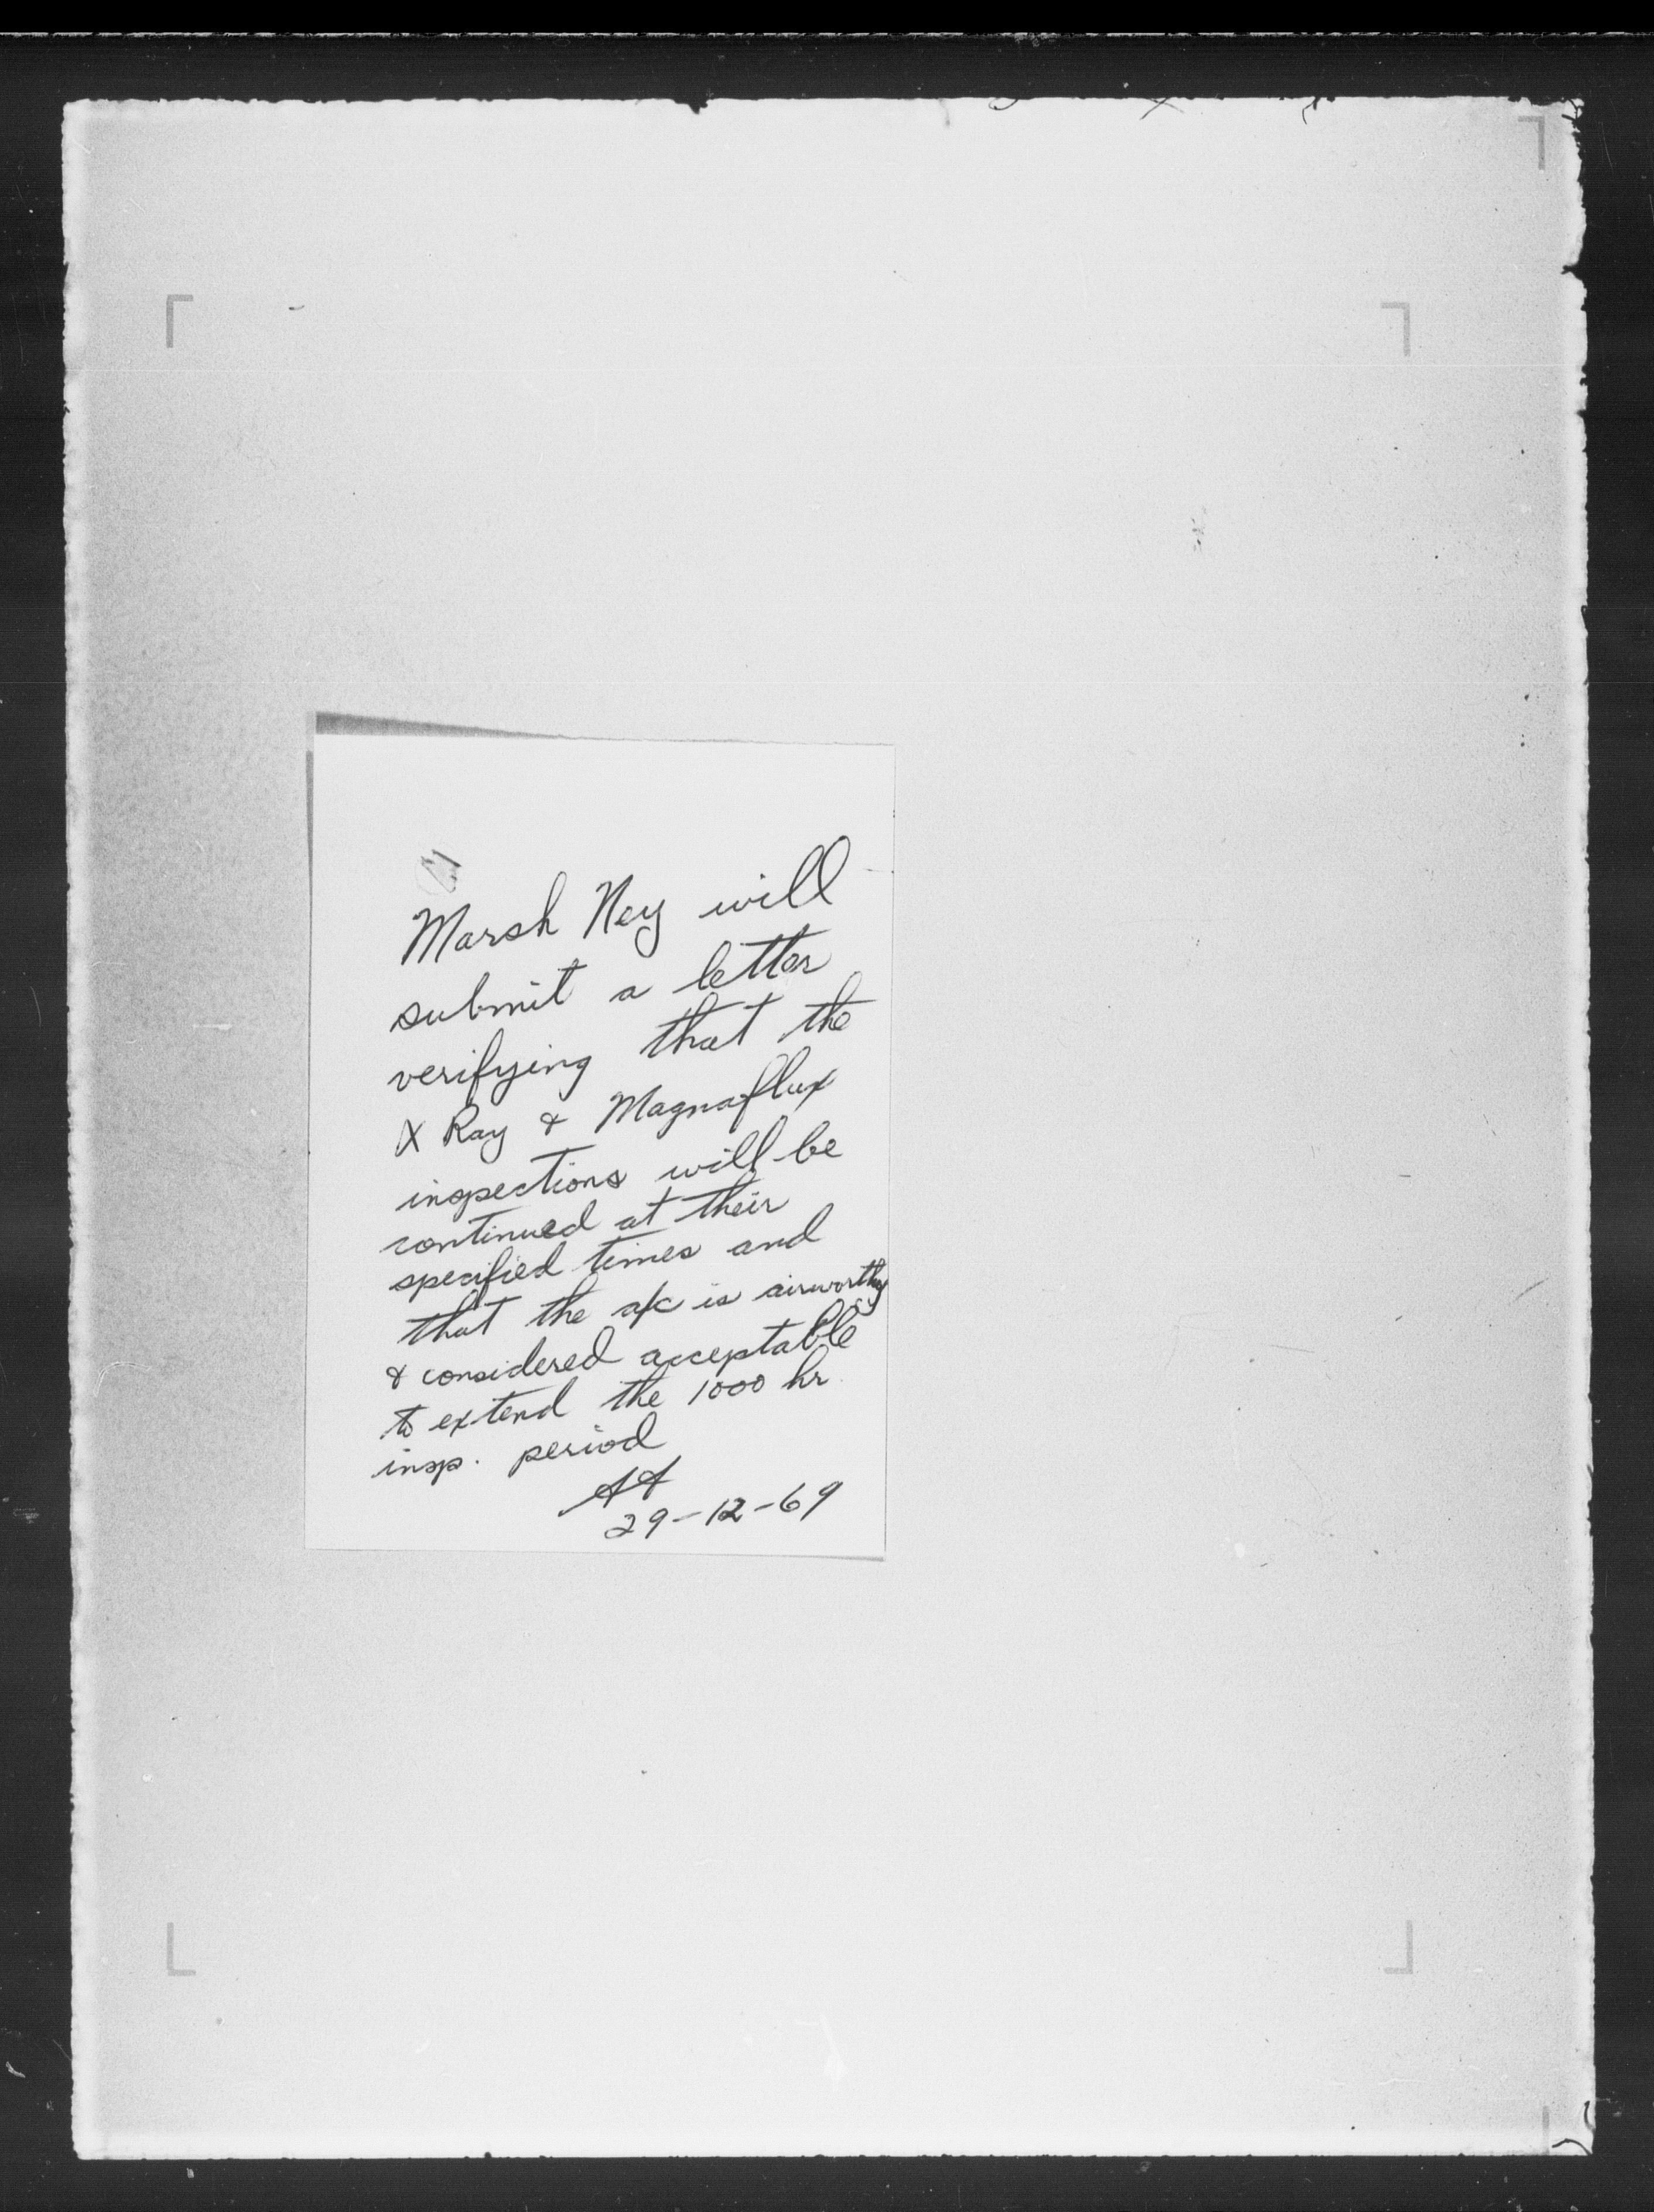 Marsh Ney will
submit a letter
verifying that the
X Ray & Magnaflux
inspections will be
continued at their
specified times and
that the a/c is airworthy
& considered acceptable
to extend the 1000 hr
insp. period
29-12-69